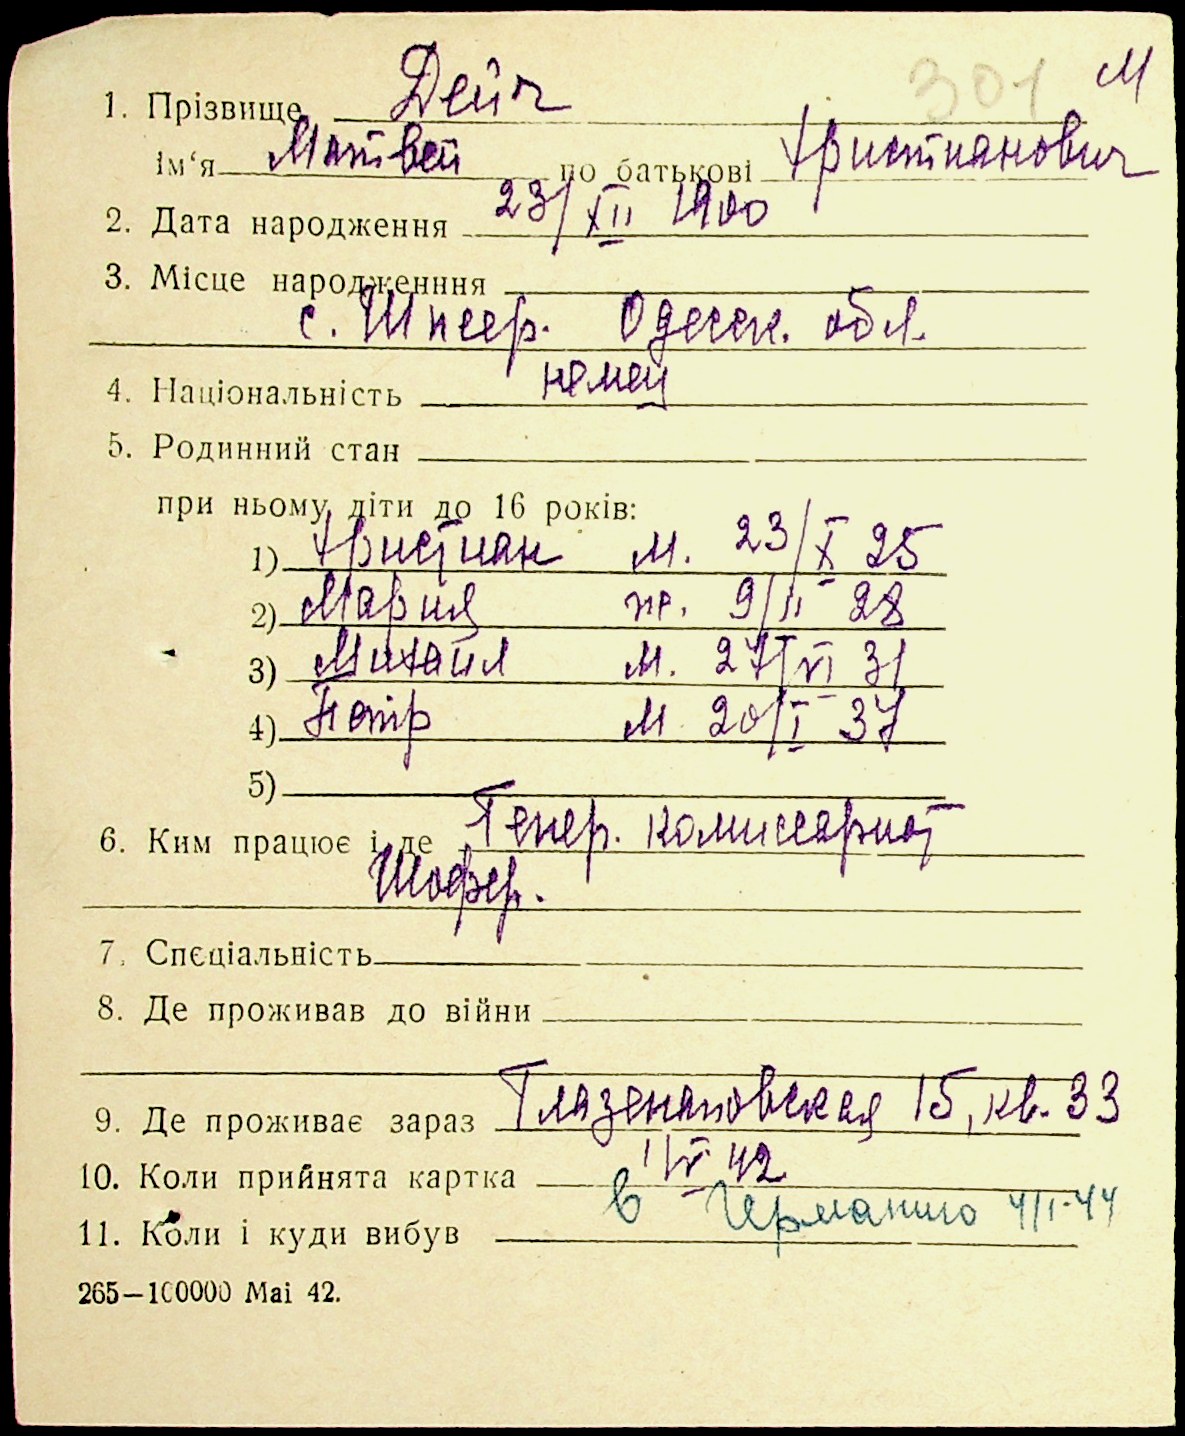 301 М
1. Прізвище Дейч
Ім‘я Матвей по батькові Христианович
2. Дата народження 23/XII 1900
3. Місце народженння
с. Шпеер. Одесск. обл.
4. Національність немец
5. Родинний стан
при ньому діти до 16 років:
1) Христиан м. 23/X 25
2) Мария ж. 9/II 28
3) Михаил м. 27/VI 31
4) Петр м. 20/I 37
5)
6. Ким працює і де Генер. комиссариат
Шофер.
7. Спеціальність
8. Де проживав до війни
9. Де проживає зараз Глазенаповская 15, кв. 33
10. Коли прийнята картка 1/V 42
11. Коли і куди вибув в Германию 4/I-44
265—100000 Маі 42.